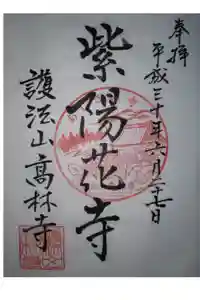 奉拝
平成三十年六月二十七日
紫陽花寺
護法山高林寺